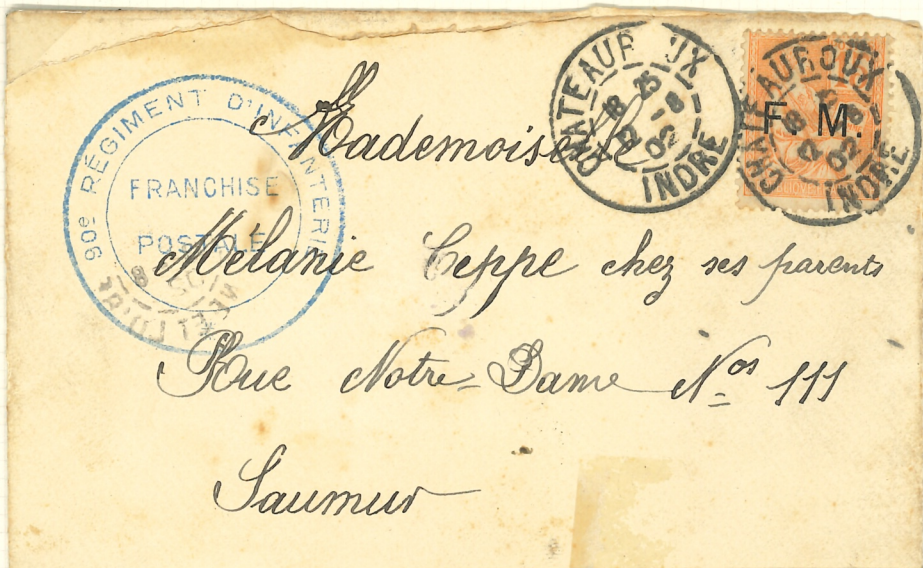 90e RÉGIMENT D'INFANTERIE
FRANCHISE
POSTALE
CHATEAUROUX
18 25
-8
02
INDRE
CHATEAUROUX
-8
02
INDRE
F. M.
Mademoiselle
Mélanie Ceppe chez ses parents
Rue Notre-Dame Nos 111
Saumur